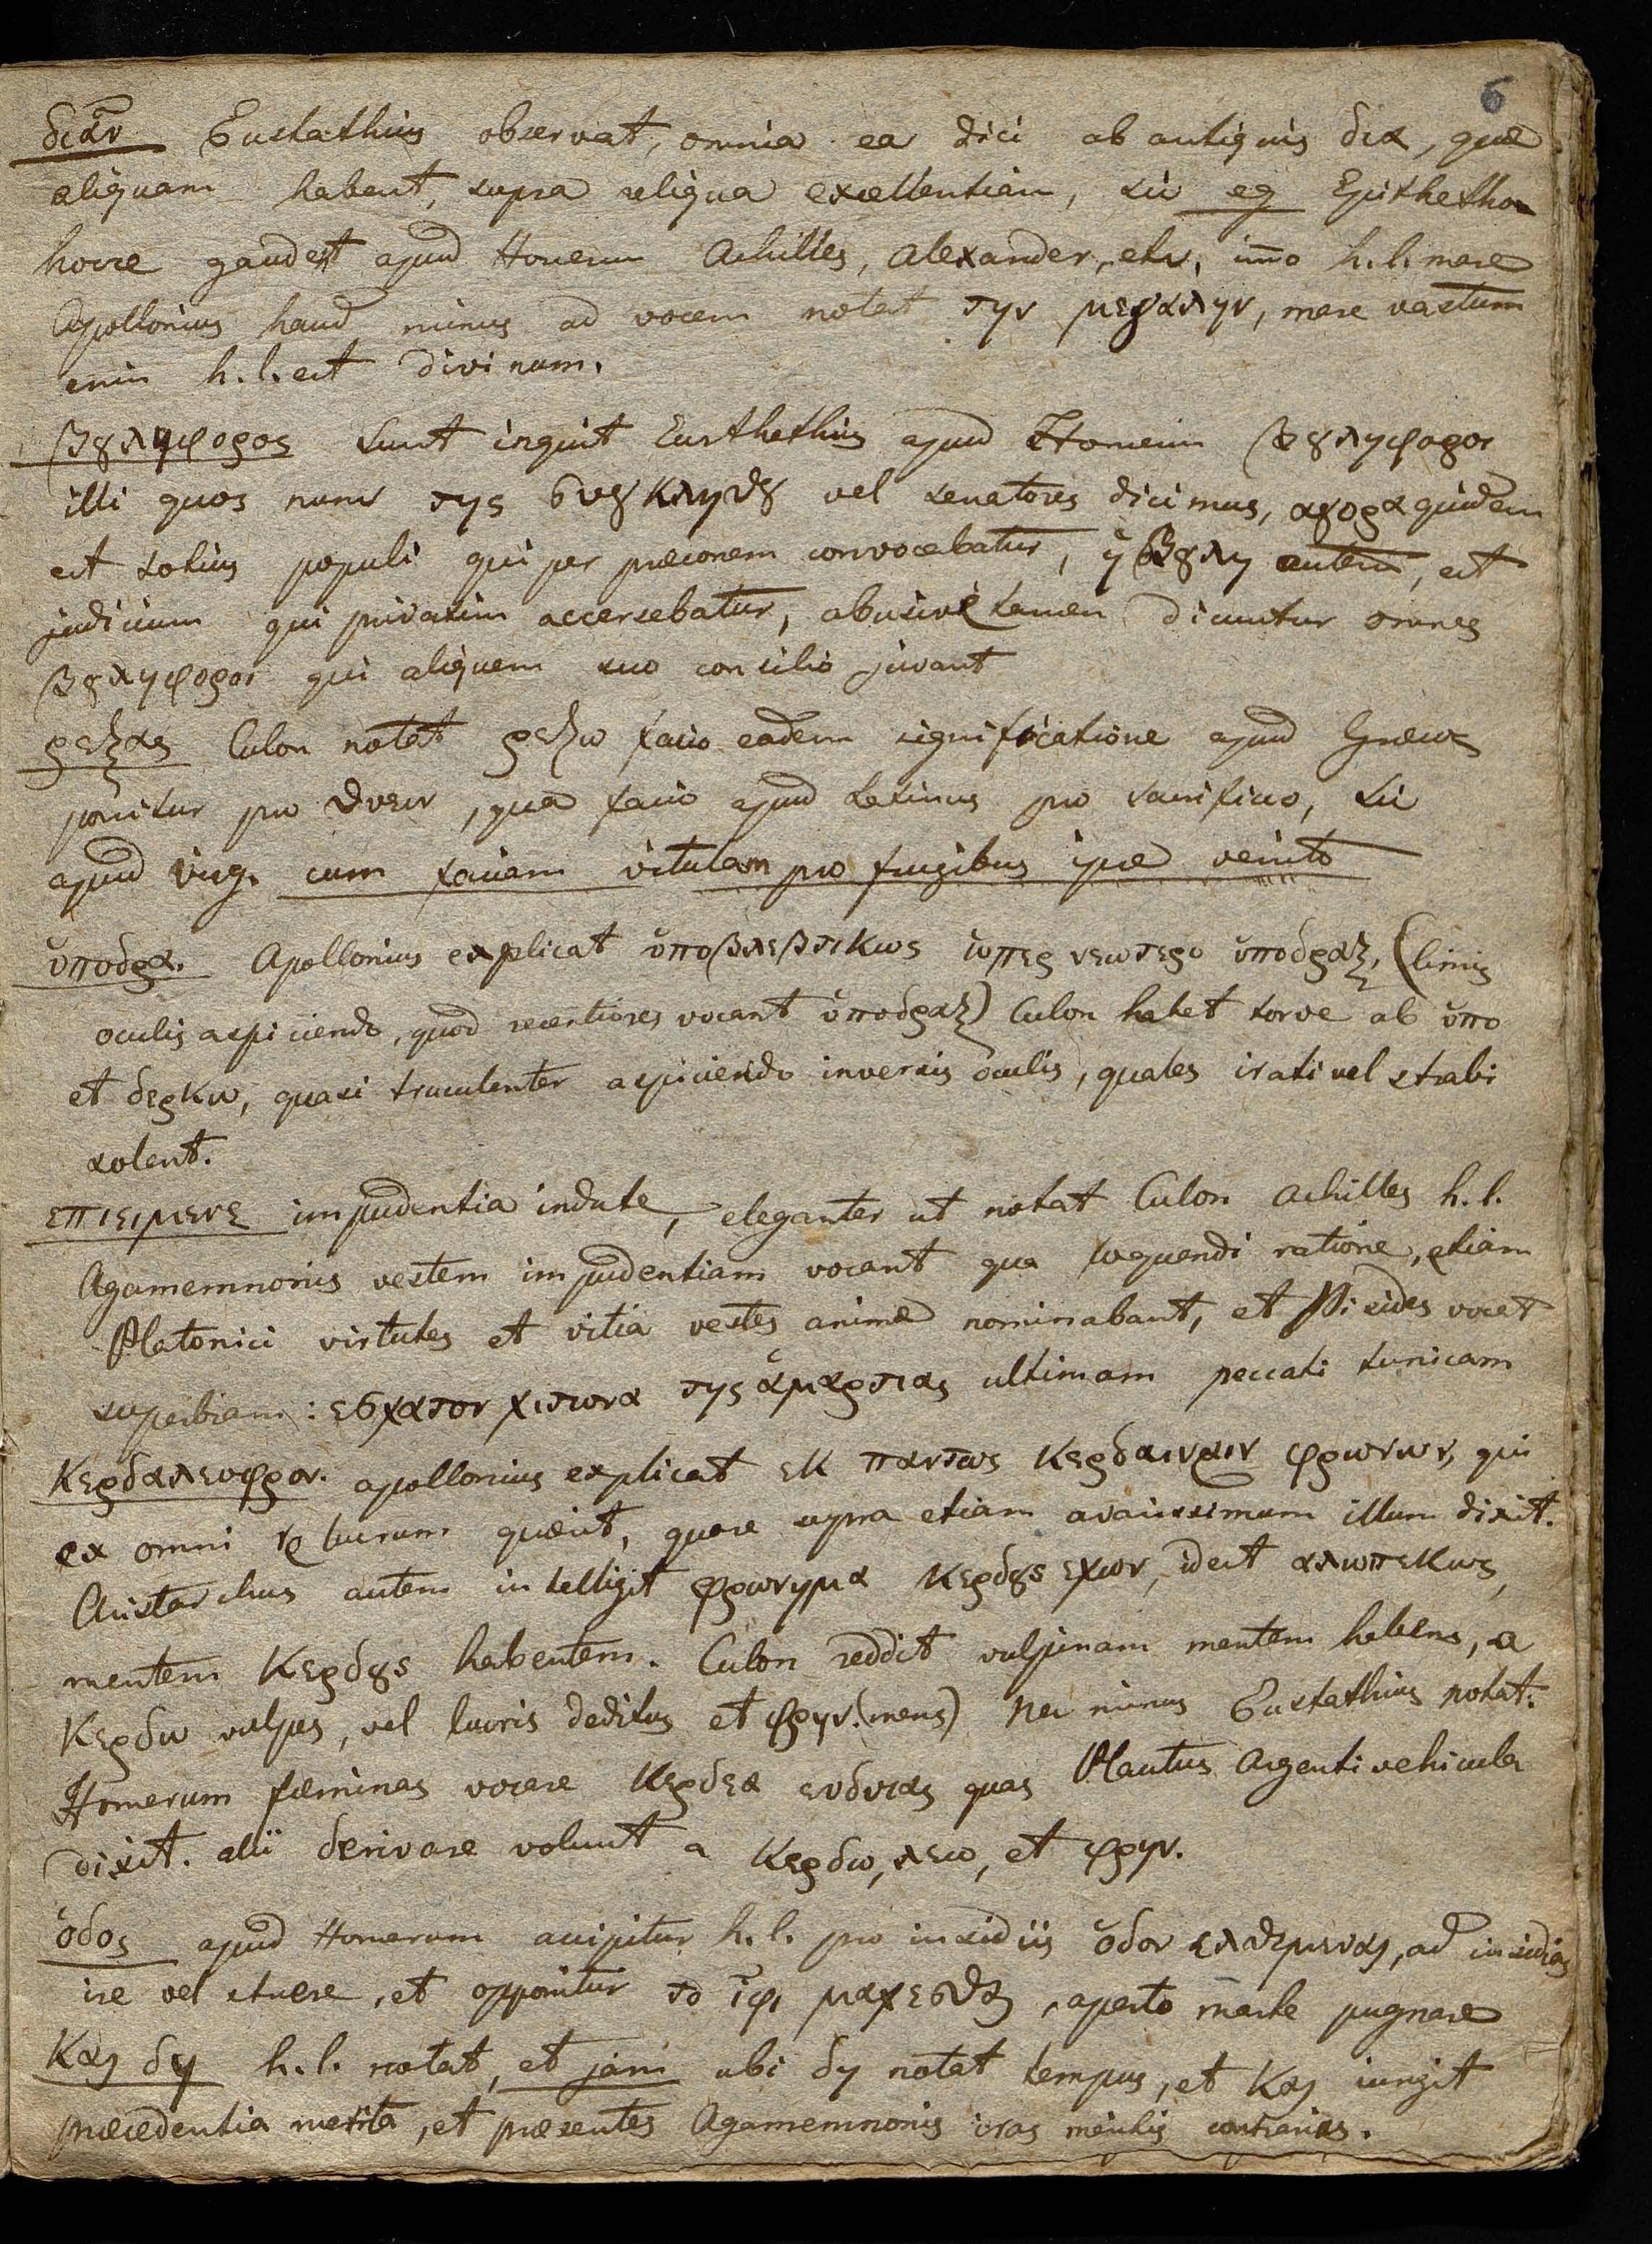 6
διᾶν Eustathius observat, omnia ea dici ab antiquis δια, quæ
aliquam habent, supra reliqua excellentiam, sic eg Epithetho
hocce gaudet apud Homerum Achilles, Alexander, etc, imo h.l. mare
Apollonius haud minus ad vocem notat την μεγαλην, mare vastum
enim h.l. est divinum.
βȣληφορος sunt inquit Eusthethius apud Homerum βȣληφοροι
illi quos nunc της συγκλητȣ vel senatores dicimus, αγορα quidem
est totius populi qui per præconem convocabatur, ἡ βȣλη autem, est
judicium qui privatim accersebatur, abusive tamen dicuntur omnes
βȣληφοροι qui aliquem suo consilio juvant
ρεξας Culon notat ρεζω facio eadem significatione apud Græcos
ponitur pro θυειν, qua facio apud Latinos pro sacrifico, sic
apud Virg. cum faciam vitulam pro frugibus ipse venito
ὑποδρα. Apollonius explicat ὑποβλεβτικως ὡπερ νεωτερο ὑποδραξ, (limis
oculis aspiciendo, quod recentiores vocant ὑποδραξ) Culon habet torve ab ὑπο
et δερκω, quasi truculenter aspiciendo inversis oculis, quales irati vel strabi
solent.
επιειμενε impudentia indute, eleganter ut notat Culon Achilles h.l.
Agamemnonis vestem impudentiam vocant qua loquendi ratione, etiam
Platonici virtutes et vitia vestes animæ nominabant, et Pisides vocat
superbiam: εσχατον χιτωνα της ἁμαρτιας ultimam peccati tunicam
Κερδαλεοφρον. apollonius explicat εκ παντως κερδαινειν φρωνων, qui
ex omni re lucrum quærit, quare supra etiam avarissimum illum dixit.
Aristarchus autem intelligit φρωνημα κερδȣς εχων, idest αλωπεκως,
mentem κερδȣς habentem. Culon reddit vulpinam mentem habens, a
κερδω vulpes, vel lucris deditus et φρην. (mens) Nec minus Eustathius notat:
Homerum fæminas vocare κερδεα ειδυιας quas Plautus Argenti vehicula
dixit. alii derivare volunt a κερδω, λεω, et φρην.
ὁδος apud Homerum accipitur h.l. pro insidiis ὁδον ελθεμεναι, ad insidias
ire vel struere, et opponitur το ἰφι μαχεσθαι, aperto marte pugnare
Και δη h.l. notat, et jam ubi δη notat tempus, et και iungit
præcedentia merita, et præsentes Agamemnonis iras meritis contrarias.